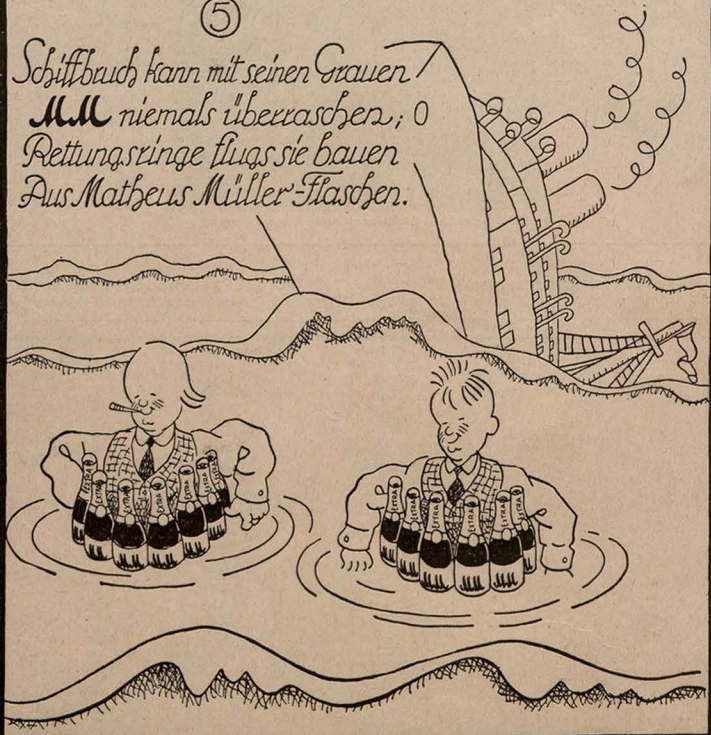 5
Schiffbruch kann mit seinen Grauen
MM niemals überraschen;
Rettungsringe flugs sie bauen
Aus Matheus Müller-Flaschen.
EXTRA EXTRA EXTRA EXTRA EXTRA EXTRA EXTRA
EXTRA EXTRA EXTRA EXTRA EXTRA EXTRA